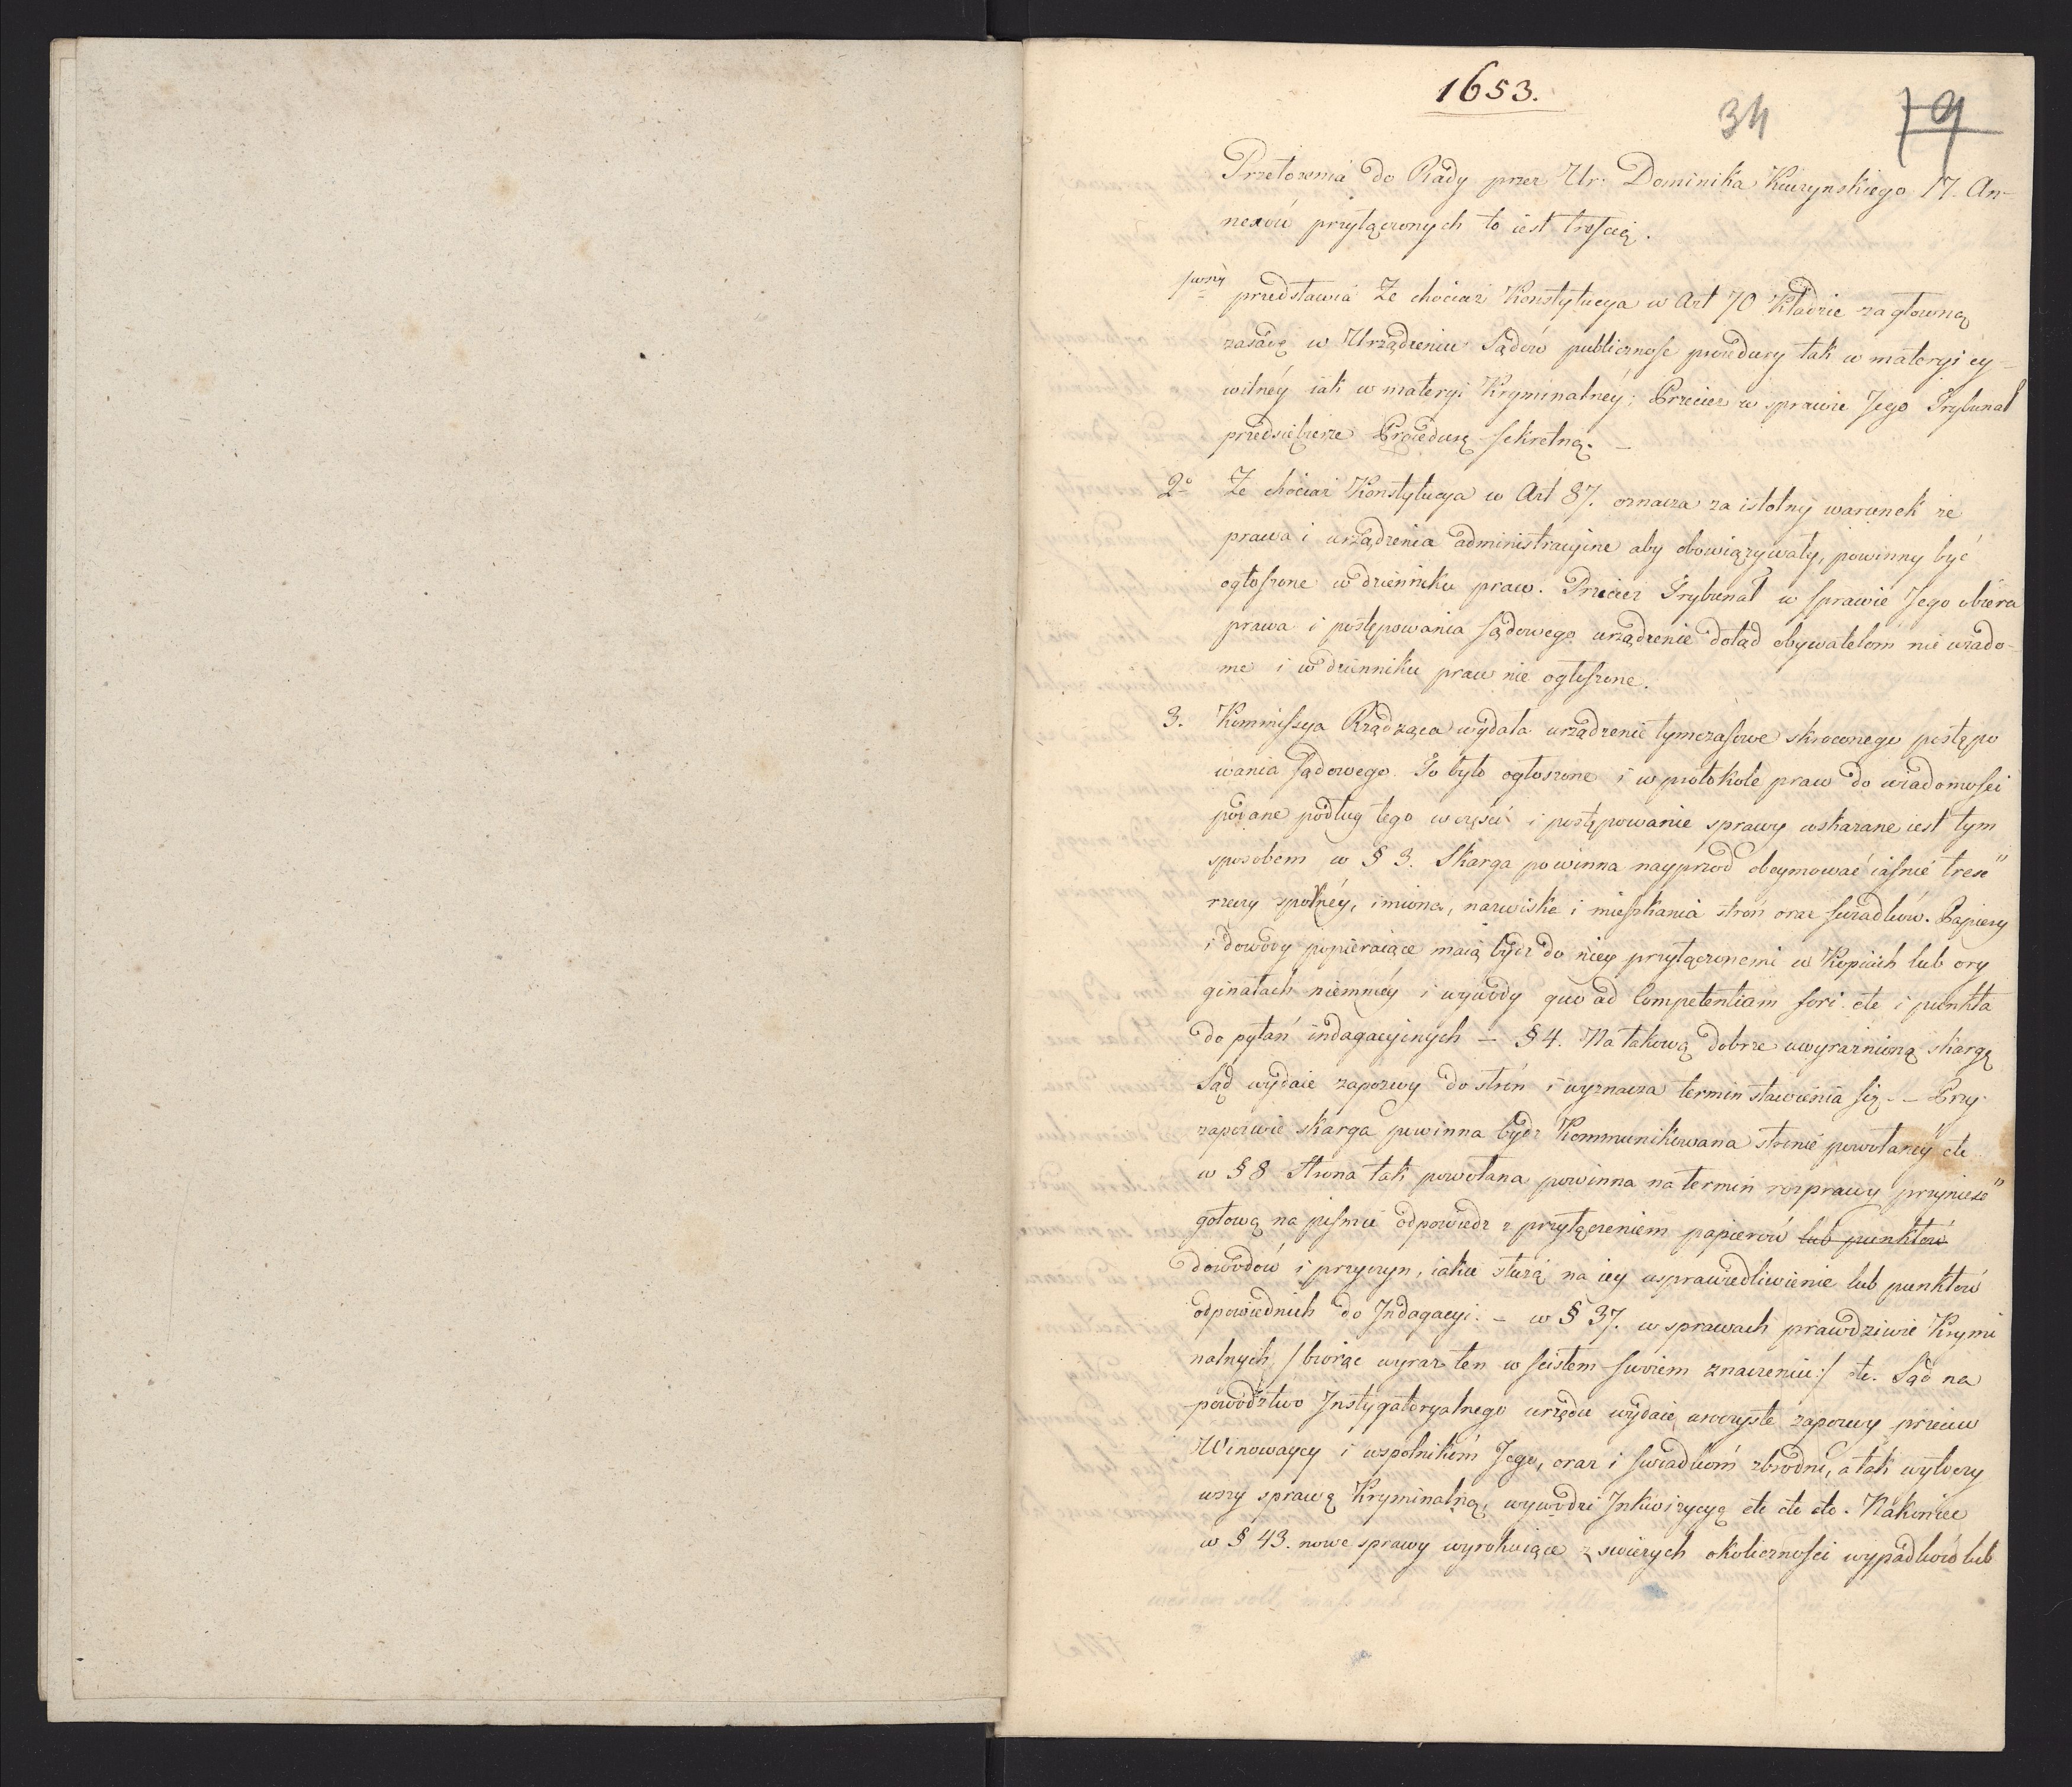 1653.
34 79
Przełożenia do Rady przez Ur: Dominika Kuczynskiego 17. An-
nexów przyłączonych to iest treścią.
przedstawia Ze chociaż Konstytucya w Art 70 Kładzie za głowną
zasadę w Urządzeniu Sądów publicznosc procedury tak w materyi cy-
wilnéy iak w materyi Kryminalnéy; Przecież w sprawie Jego Trybunał
przedsiębierze Procedurę sekretną. —
2o Ze chociaż Konstytucya w Art 87. oznacza za istotny warunek że
prawa i urządzenia administracyine aby obowiązywały, powinny być
ogłoszone w dzienniku praw. Przecież Trybunał w sprawie Jego obiera
prawa i postępowania sądowego urządzenie dotąd obywatelom nie wiado-
me i w dzienniku praw nie ogłoszone.
3. Kommissya Rządząca wydała urządzenie tymczasowe skroconego postępo
wania sądowego. To było ogłoszone i w protokole praw do wiadomości
podane podług tego weyscie i postępowanie sprawy wskazane iest tym
sposobem w § 3. Skarga powinna nayprzod obeymować iasnie tresc"
rzeczy spornéy, imiona, nazwiska i mieszkania stron oraz swiadków. Papiery
i dowody popieraiące maią bydz do niey przyłączonemi w Kopiach lub ory
ginałach niemniéy i wywody quo ad Competentiam fori etc i punkta
do pytań indagacyinych — § 4. Na takową dobrze uwyrażnioną skargę
Sąd wydaie zapozwy do stron i wyznacza termin stawienia się — Przy
zapozwie skarga powinna bydz Kommunikowana stronie powołaney" etc
w § 8 Strona tak powołana powinna na termin rozprawy przyniesc"
gotową na pismie odpowiedz z przyłączeniem papierów lub punktów
dowodów i przyczyn, iakie służą na iey usprawiedliwienie lub punktów
odpowiednich do Jndagacyi. — w § 37. w sprawach prawdziwie Krymi
nalnych /biorąc wyraz ten w scisłem swoiem znaczeniu:/ etc. Sąd na
powodztwo Jnstygatoryalnego urzędu wydaie uroczyste zapozwy przeciw
Winowaycy i wspolnikom Jego, oraz i swiadkom zbrodni, a tak wytoczy
wszy sprawę Kryminalną, wywodzi Jnkwizycyę etc etc etc. Nakoniec
w § 43. nowe sprawy wynikaiące z swieżych okolicznosci wypadków lub